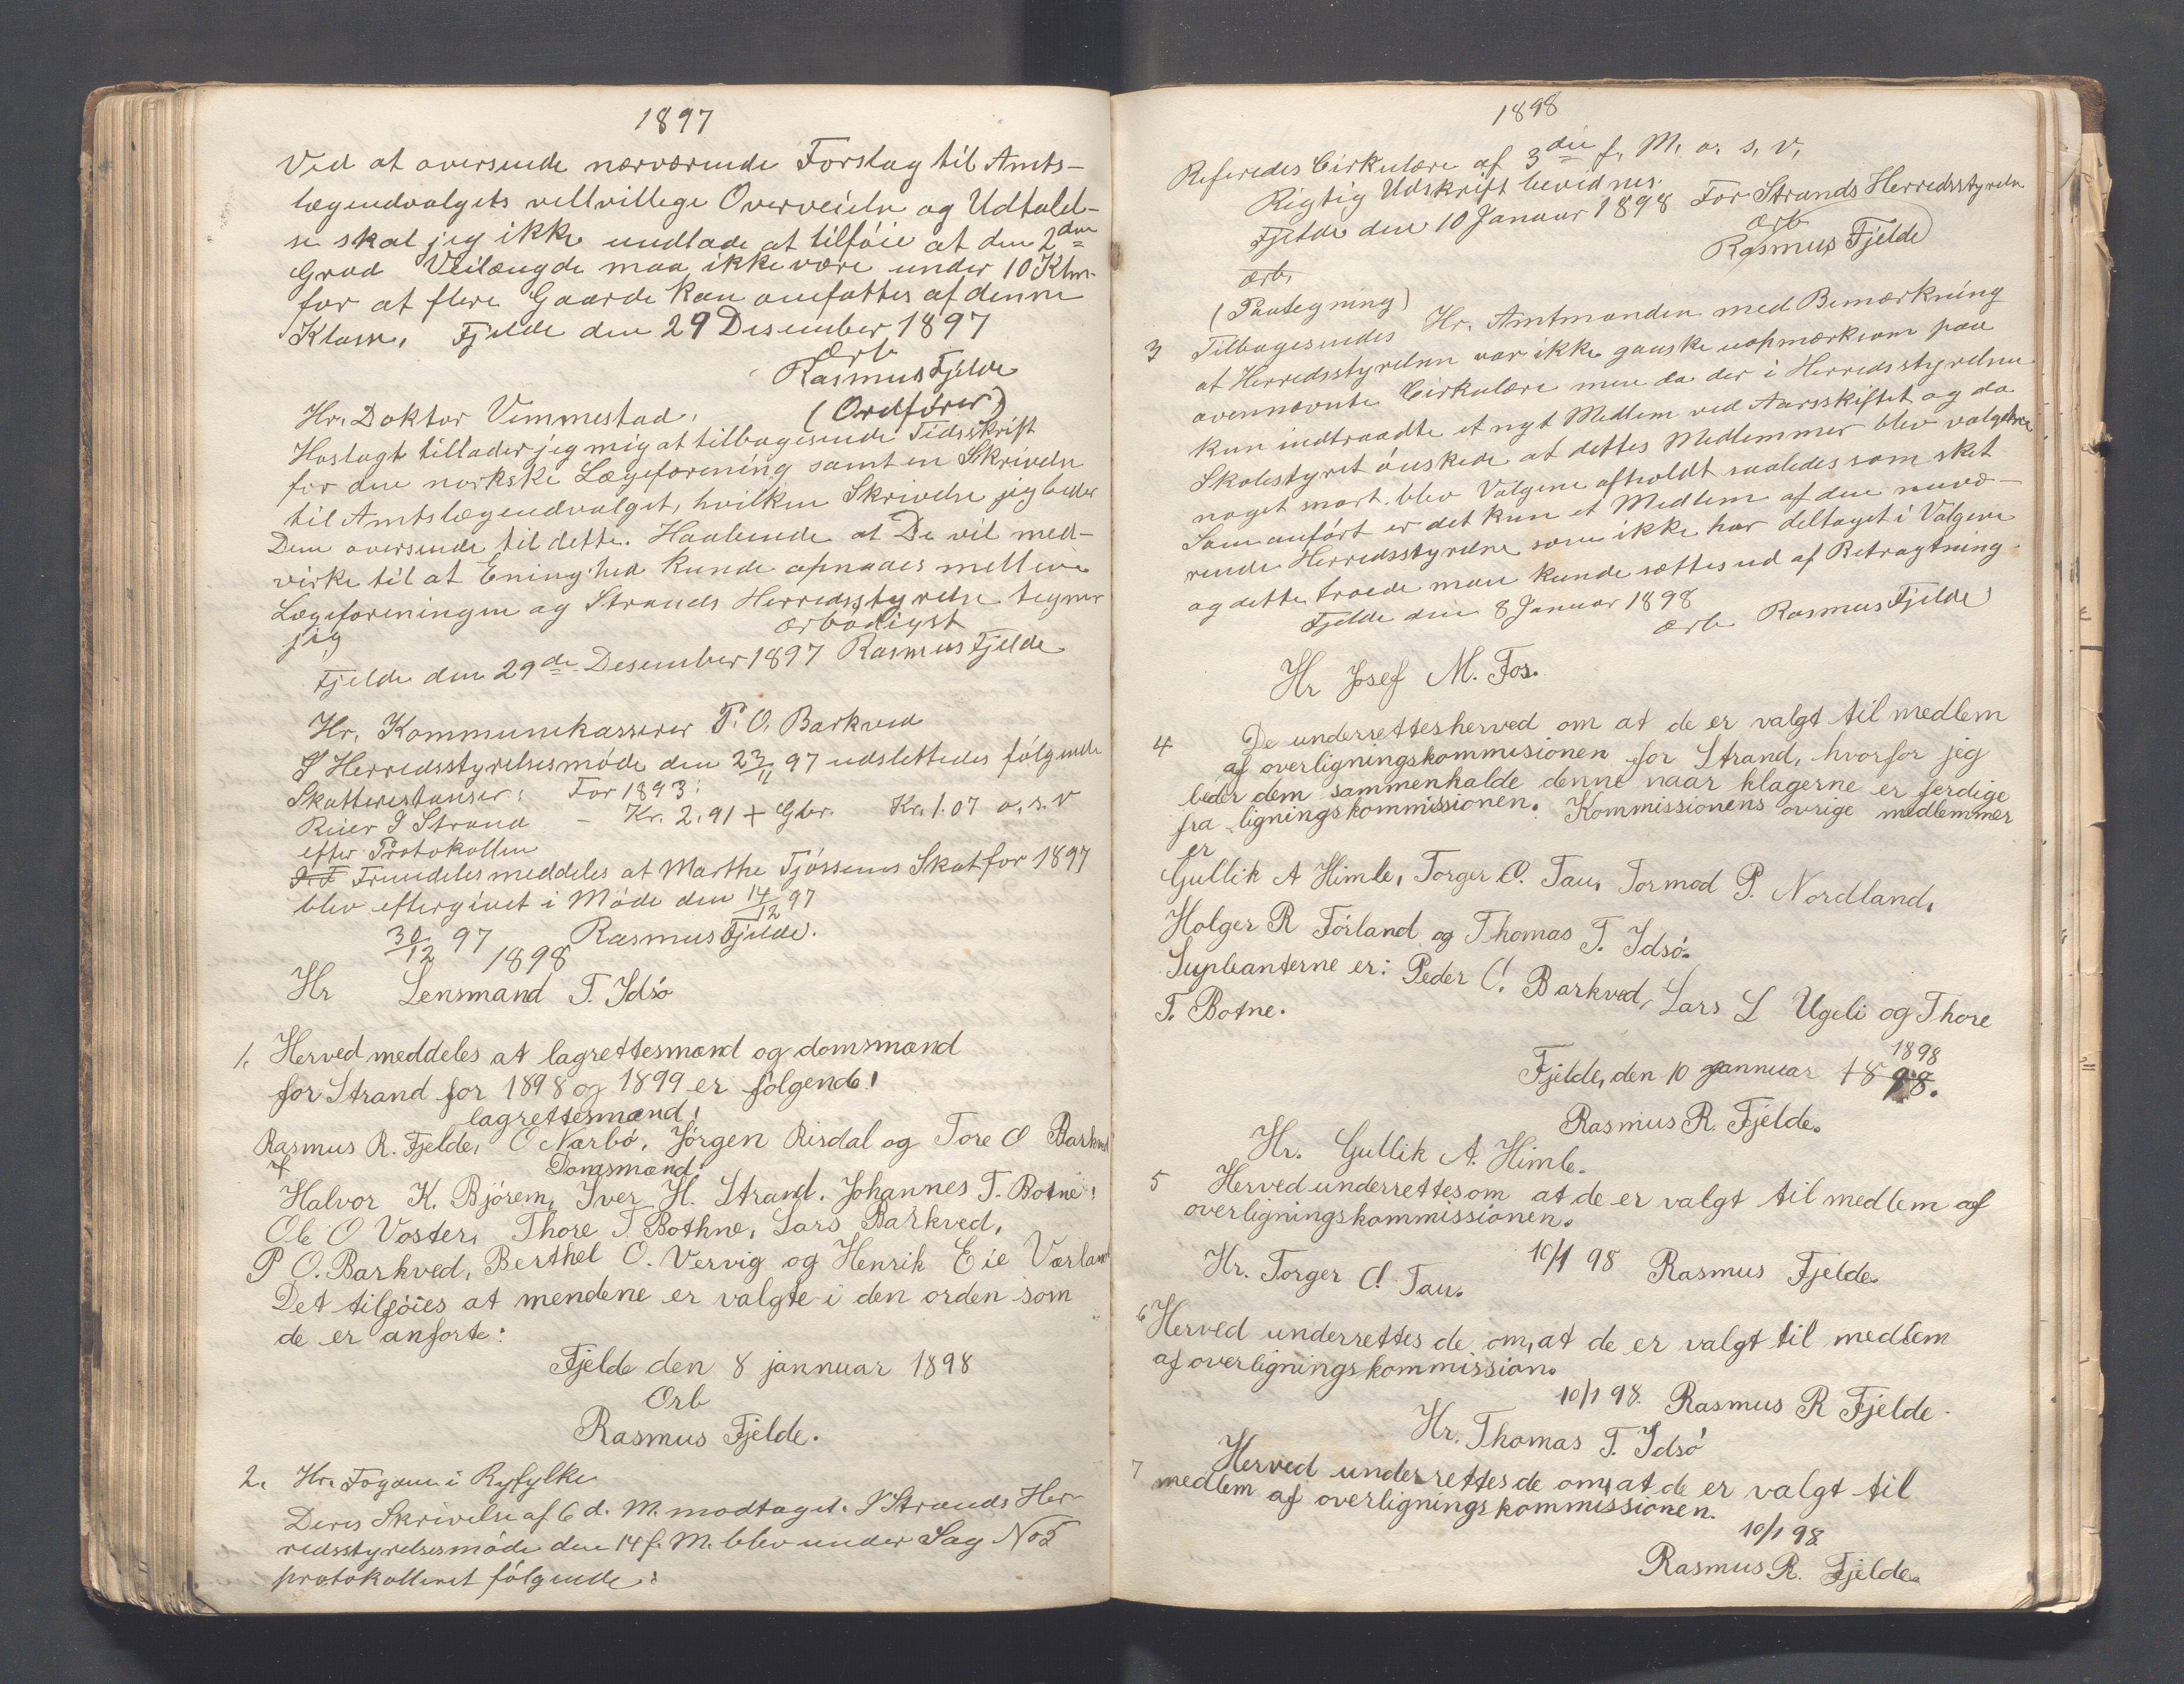 1897
Ved at oversende nærværende Forslag til Amts-
lægeudvalgets vellvillege Overveielse og Udtalel-
se skal jeg ikke undlade at tilföie at den 2den
Grad Veilængde maa ikke være under 10 Klm.
for at flere Gaarde kan omfattes af denne
Klasse. Fjelde den 29 Desember 1897
Ærb
Rasmus Fjelde
(Ordförer)
Hr. Doktor Vimmestad.
Hoslagt tillader jeg mig at tilbagesende Tidsskrift
for den norkske Lægeforening samt en Skrivelse
til Amtslægeudvalget, hvilken Skrivelse jeg beder
Dem oversende til dette. Haabende at De vil med-
virke til at Eninghed kunde opnaaes mellem
Lægeforeningen og Strands Herredsstyrelse tegner
jeg
ærbödigst
Fjelde den 29de Desember 1897 Rasmus Fjelde
Hr. Kommunekasserer P. O. Barkved
I Herredsstyrelsesmöde den 23/11 97 udslettedes fölgende
Skatterestanser: For 1893:
Reier I Strand - Kr. 2.91 + Gbr. Kr. 1.07 o. s. v
efter Protokollen
Fremdeles meddeles at Marthe Tjössems Skat for 1897
blev eftergivet i Möde den 14/12 97
30/12 97 Rasmus Fjelde.
1898
Hr Lensmand T. Idsö
1. Herved meddeles at lagrettesmænd og domsmænd
for Strand for 1898 og 1899 er fölgende!
lagrettesmænd!
Rasmus R. Fjelde, O Nærbö, Jörgen Risdal og Tore O Barkved
Domsmænd:
Halvor K. Björem, Iver H. Strand. Johannes T. Botne!
Ole O Voster, Thore T. Bothne, Lars Barkved,
P O. Barkved, Berthel O. Vervig og Henrik Eie Vorland
Det tilföies at mendene er valgte i den orden som
de er anforte:
Fjelde den 8 jannuar 1898
Ærb
Rasmus Fjelde.
2. Hr. Fogden i Ryfylke
Deres Skrivelse af 6 d. M. modtaget. I Strands Her-
redsstyrelsesmöde den 14 f. M. blev under Sag No 5
protokolleret fölgende:
1898
Referedes Cirkulære af 3die f. M. o. s. v.
Rigtig Udskrift bevidnes.
Fjelde den 10 Januar 1898 For Strands Herredsstyrelse
Ærb
Rasmus Fjelde
Ærb.
(Paategning)
3 Tilbagesendes Hr. Amtmanden med Bemærkning
at Herredsstyrelsen var ikke ganske uopmærksom paa
ovennævnte Cirkulære men da der i Herredsstyrelsen
kun indtraadte et nyt Medlem ved Aarsskiftet og da
Skolestyret önskede at dettes Medlemmer blev valgte
noget snart blev Valgene afholdt saaledes som sket
Som anfört er det kun et Medlem af den nuvæ-
rende Herredsstyrelse som ikke har deltaget i Valgene
og dette troede man kunde sættes ud af Betragtning.
Fjelde den 8 Januar 1898
Ærb Rasmus Fjelde
Hr Josef M. Fos.
4 De underrettes herved om at de er valgt til medlem
af overligningskommisionen for Strand, hvorfor jeg
beder dem sammenkalde denne naar klagerne er ferdige
fra ligningskommissionen. Kommissionens övrige medlemmer
er
Gullik A Himle, Torger O. Tau, Tormod P. Nordland,
Holger R Förland og Thomas T. Idsö.
Supleanterne er: Peder O. Barkved, Lars L Ugeli og Thore
T. Botne.
1898
Fjelde, den 10 jannuar 1898.
Rasmus R. Fjelde.
Hr. Gullik A. Himle.
5 Herved underrettes om at de er valgt til medlem af
overligningskommissionen.
10/1 98 Rasmus Fjelde.
Hr. Torger O. Tau.
6 Herved underrettes de om, at de er valgt til medlem
af overligningskommission.
10/1 98. Rasmus R Fjelde.
Hr. Thomas T. Idsö
7 Herved underrettes de om, at de er valgt til
medlem af overligningskommissionen.
10/1 98
Rasmus R. Fjelde.